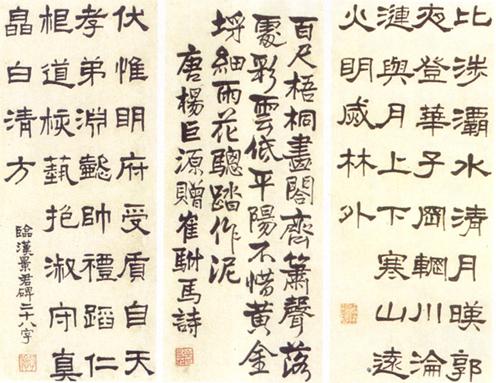 比涉灞水清月暎郭
夜登華子岡輞川淪
漣與月上下寒山遠
火明烕林外
百尺梧桐畫閣齊簫聲落
處彩雲低平陽不惜黃金
埒細雨花驄踏作泥
唐楊巨源贈崔駙馬詩
伏惟明府受質自天
孝弟淵懿帥禮蹈仁
根道核藝抱淑守真
皛白清方
臨漢景君碑二十八字